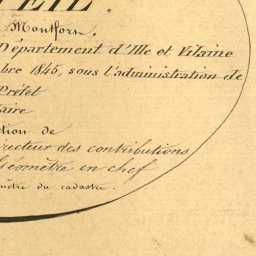 EIL.
Montfort.
Département d'Ille et Vilaine
bre 1845, sous l'administration de
Préfet
aire
tion de
irecteur des contributions
Géomètre en chef
mètre du cadastre.